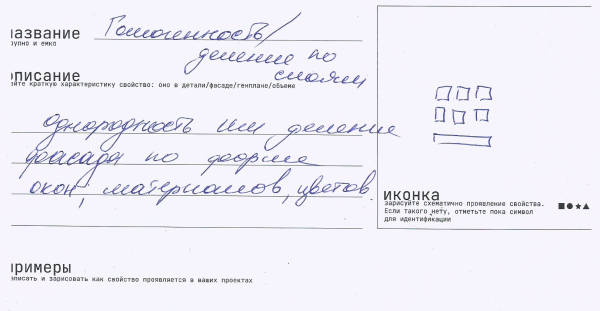 название Гомогенность/
крупно и емко
деление по
слоям
описание
дайте краткую характеристику свойство: оно в детали/фасаде/генплане/объеме
однородность или деление
фасада по форме
окон, материалов, цветов
иконка
зарисуйте схематично проявление свойства.
Если такого нету, отметьте пока символ
для идентификации
■●★▲
примеры
описать и зарисовать как свойство проявляется в ваших проектах